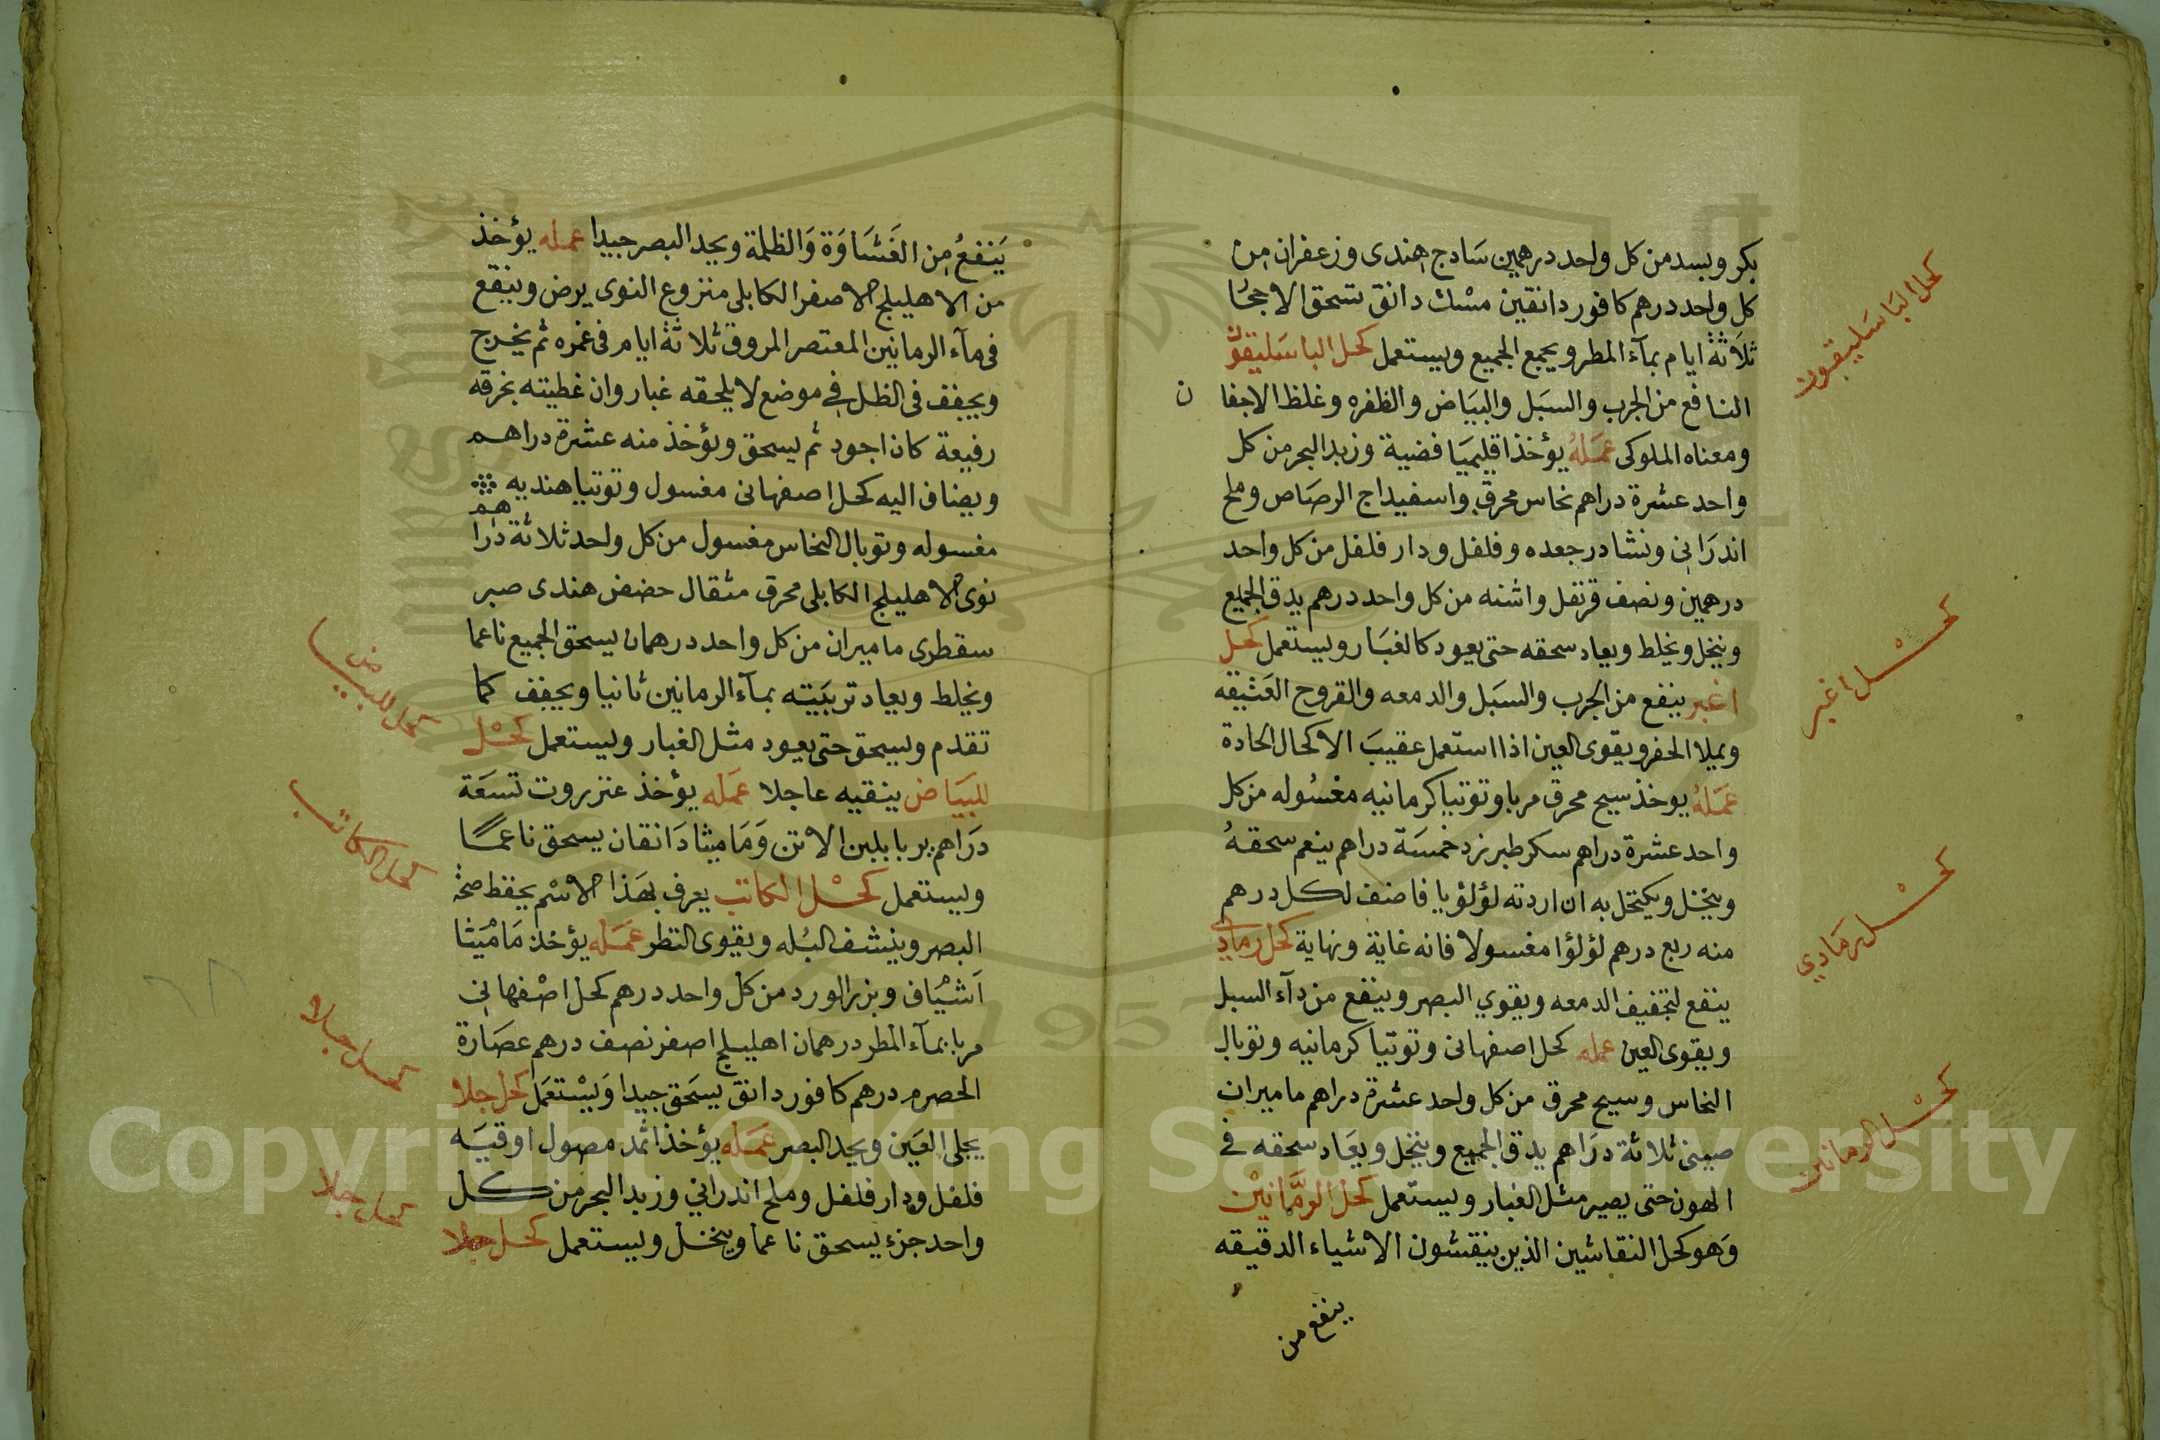 بكر وبسد من كل واحد درهمين سَادج هندى وزعفران من
كل واحد درهم كافور دانقين مسْك دانق تسحق الاحجُا
ثلَاثة ايام بمآء المطر ويجمع الجميع ويستعمل كحل الباسَليقوُن
النافع من الجرب والسبَل والبيَاض والظفره وغلظ الاجفا ن
ومعناه الملوكى عمَلهُ يؤخذ اقليميَا فضية وزبد البحر من كل
واحد عشرة دراهم نحاس محرق واسفيداج الرصَاص وملح
اندرَانى ونشادر جعده وفلفل ودار فلفل من كل واحد
درهمين ونصف قرنفل واشنه من كل واحد درهم يدق الجميع
وينخل ويخلط ويعاد سحقه حتى يعود كالغبَار ويستعمل كحل
اغبر ينفع من الجرب والسبَل والدمعه والقروح العَتيقه
ويملا الحفر ويقوى العين اذا استعمل عقيبَ الاكحال الحادة
عمَلهُ يوخذ سيح محرق مربا وتوتيا كرمانيه مغسُوله من كل
واحد عشرة دراهم سكر طبرزد خمسَة دراهم ينعم سحقهُ
وينخل ويكتحل به ان اردته لؤلؤيا فاضف لكل درهم
منه ربع درهم لؤلؤا مغسولا فانه غاية ونهاية كحل رمادى
ينفع لتجفيف الدمعه ويقوي البصر وينفع من دآء السبل
ويقوى العين عمله كحل اصفهانى وتوتيا كرمانيه وتوبال
النحاس وسيح محرق من كل واحد عشرة دراهم ماميران
صينى ثلاثة درَاهم يدق الجميع وينخل ويعَاد سحقه فى
الهون حتى يصير مثل الغبار ويستعمل كحل الرمَّانيْن
وَهو كحل النقاشين الذين ينقشون الاشياء الدقيقه
ينفع من
كحل البَاسَليقون
كحْل اغبر
كحْل رمَادي
كحْل الرمانين
يَنفعُ مِن الغَشَاوَة وَالظلمة ويحد البصر جيدا عمله يؤخذ
من الاهليلج الاصفر الكابلى منزوع النوى يرض وينقع
فى مآء الرمانين المعتصر المروق ثلاثة ايام فى غمره ثم يخرج
ويجفف فى الظل فى موضع لا يلحقه غبار وان غطيته بخرقه
رفيعة كان اجود ثم يسحق ويؤخذ منه عشرة دراهم
ويضاف اليه كحل اصفهانى مغسول وتوتيا هنديه
مغسوله وتوبال النحاس مغسول من كل واحد ثلاثة درا هم
نوى الاهليلج الكابلى محرق مثقال حضض هندى صبر
سقطرى ماميران من كل واحد درهمان يسحق الجميع ناعما
ويخلط ويعاد تربَيته بمآء الرمانين ثانيا ويجفف كما
تقدم ويسحق حتى يعود مثل الغبار ويستعمل كحْل
للبيَاض ينقيه عاجلا عمَله يؤخذ عنزروت تسعَة
درَاهم يربا بلبن الاتن وَمَاميثا دَانقان يسحق ناعمًا
ويستعمل كحْل الكاتب يعرف بهَذا الاسْم يحفظ صحة
البصر وينشف البُله ويقوى النظر عمَله يؤخذ مَاميْثا
اَشيْاف وبزر الورد من كل واحد درهم كحل اصْفهانى
مربا بمآء المطر درهمان اهليلج اصفر نصف درهم عصَارة
الحصرم درهم كافور دانق يسحَق جيدا وَيسْتعمَل كحل جلا
يجلى العَين ويحد البصر عمَله يؤخذ اثمد مصول اوقيَه
فلفل ودار فلفل وملح اندراني وزبد البحر من كل
واحد جزء يسحق ناعما وينخل ويستعمل كحل جلا
كحل للبياض
كحل الكاتب
كحل جلا
كحل جلا
Copyright © King Saud University
1957